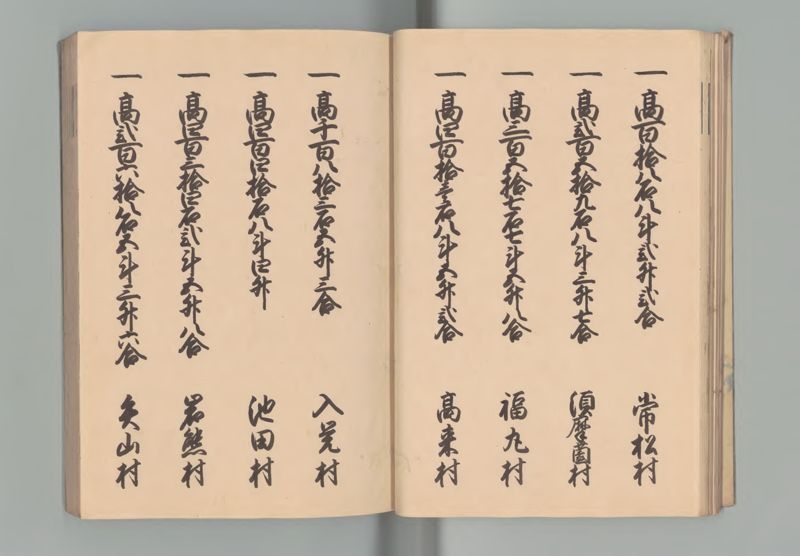 一 高百拾八石八斗弐升弐合 常松村
一 高弐百五拾九石八斗三升七合 須磨園村
一 高三百五拾七石七斗五升八合 福丸村
一 高四百拾壱石八斗五升弐合 高来村
一 高千百八拾三石五升三合 入覚村
一 高四百四拾石八斗四升 池田村
一 高四百三拾四石弐斗五升八合 岩熊村
一 高弐百六拾八石五斗三升六合 矢山村